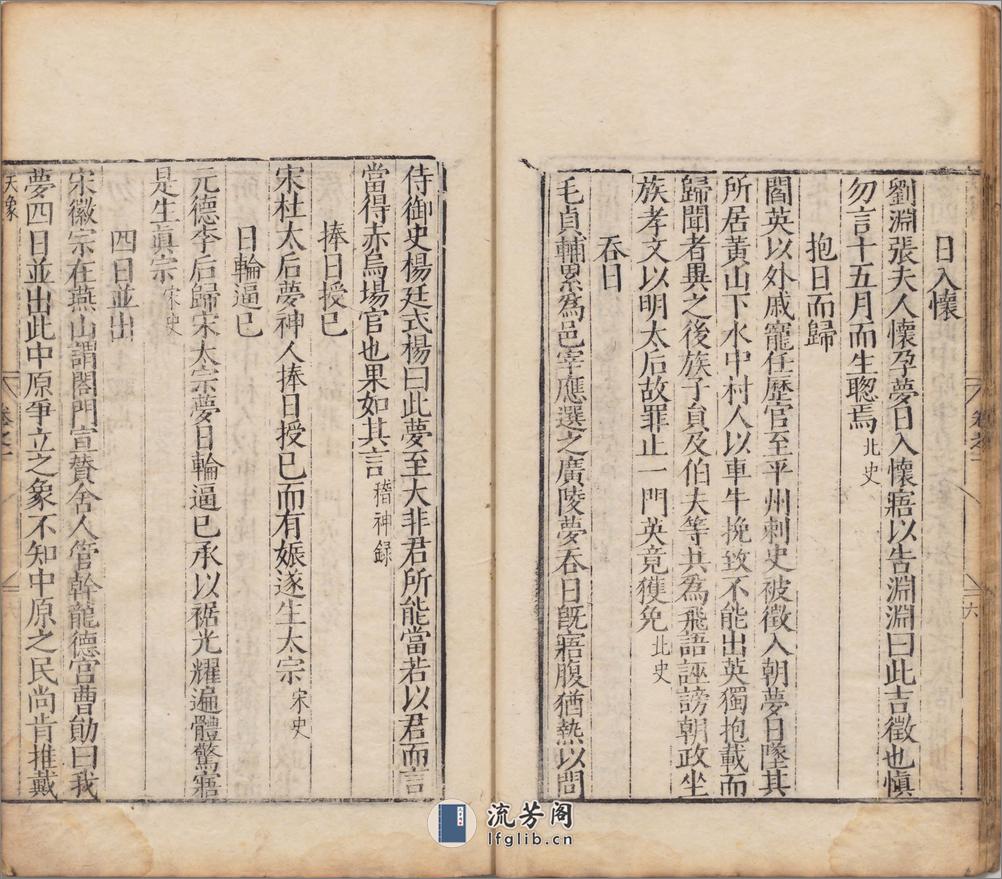 日入懷
劉淵張夫人懷孕夢日入懷寤以告淵淵曰此吉徵也愼
勿言十五月而生聦焉 北史
抱日而歸
閻英以外戚寵任歷官至平州刺史被徵入朝夢日墜其
所居黃山下水中村人以車牛挽致不能出英獨抱載而
歸聞者異之後族子貟及伯夫等共為飛語誣謗朝政坐
族孝文以明太后故罪止一門英竟獲免 北史
吞日
毛貞輔累為邑宰應選之廣陵夢吞日旣寤腹猶熱以問
卷之一
六
侍御史楊廷式楊曰此夢至大非君所能當若以君而言
當得赤烏場官也果如其言 稽神録
捧日授已
宋杜太后夢神人捧日授已而有娠遂生太宗 宋史
日輪逼已
元德李后歸宋太宗夢日輪逼已承以裾光耀遍體驚寤
是生眞宗 宋史
四日並出
宋徽宗在燕山謂閤門宣贊舍人管幹龍德宮曹勛曰我
夢四日並出此中原爭立之象不知中原之民尚肯推戴
天像
卷之一
流芳阁
lfglib.cn